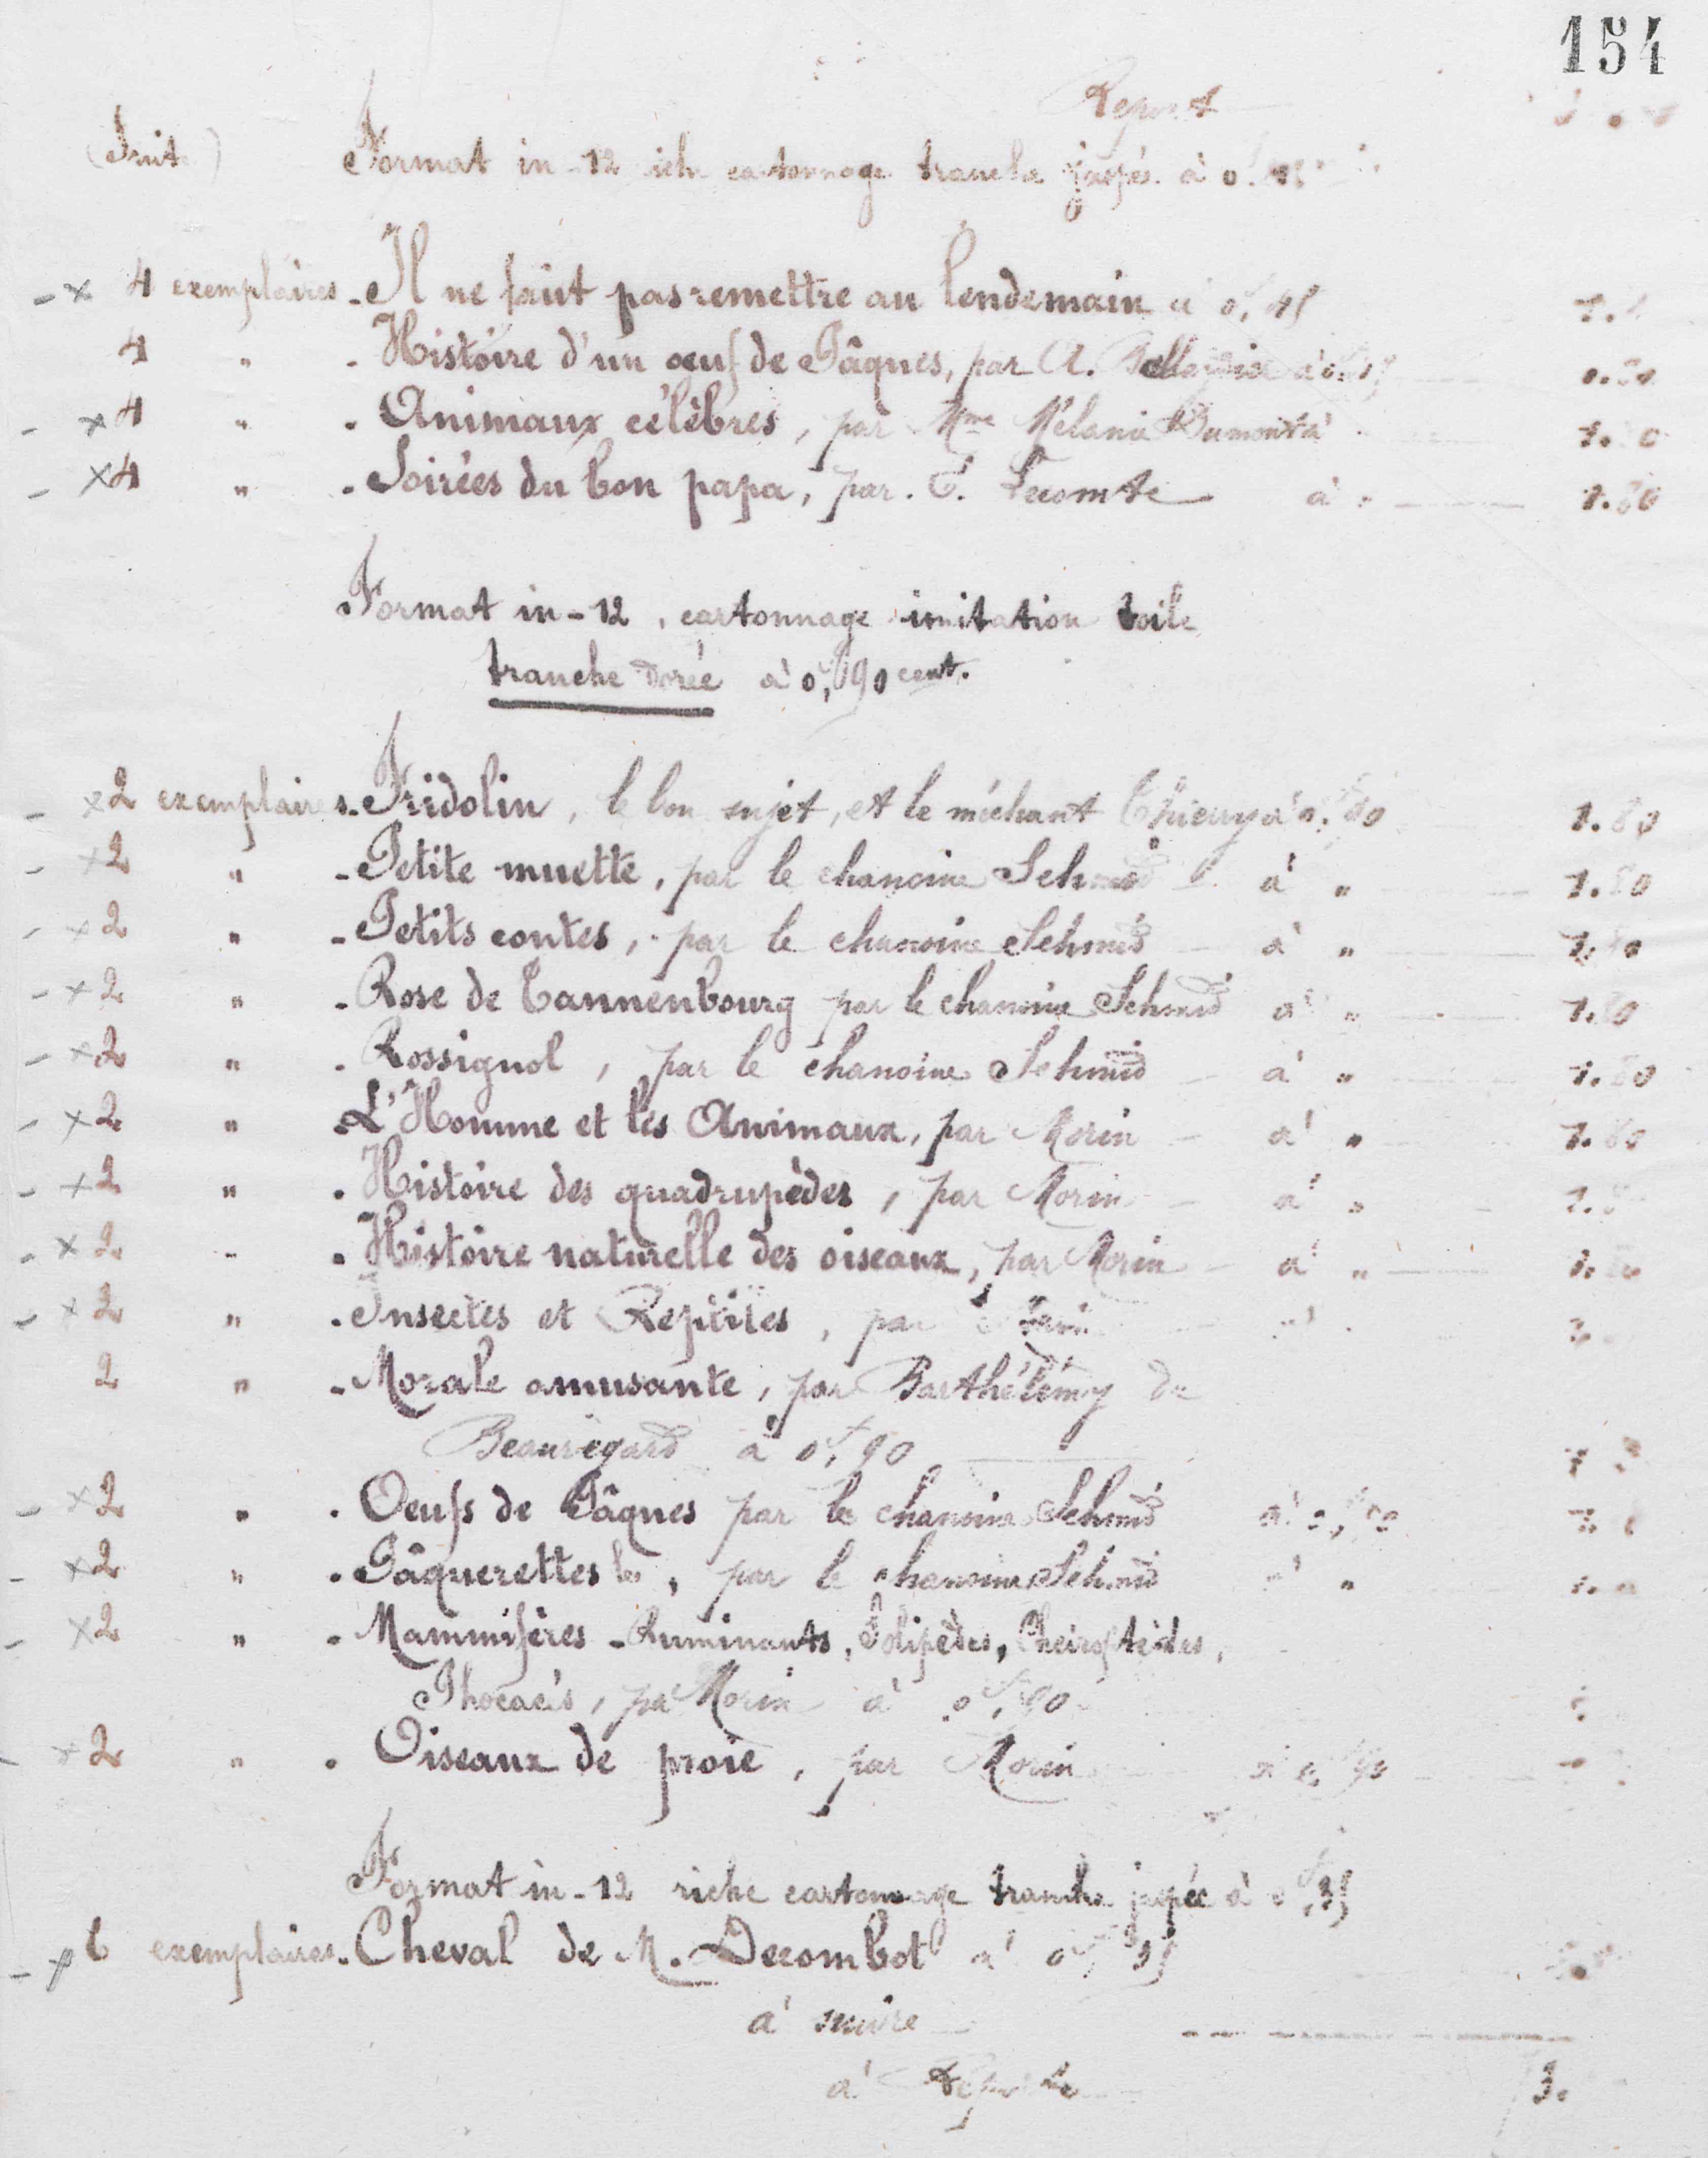 154
Report
(Suite) Format in-12 rich cartonnage tranche jaspée à 0f
4 exemplaires - Il ne faut pas remettre au lendemain à 0f,45
4 " - Histoire d'un œuf de Pâques, par A.
4 " - Animaux célèbres, par Mme Mélanie Dumont à 1.80
4 " - Soirées du bon papa, par E. Lecomte à " 1.80
Format in-12, cartonnage imitation toile
tranche dorée à 0f,90 cent.
2 exemplaires - Fridolin, le bon sujet, et le méchant Thierry à 0f,90 1.80
2 " - Petite muette, par le chanoine Schmid à " 1.80
2 " - Petits contes, par le chanoine Schmid à " 1.80
2 " - Rose de Tannenbourg par le chanoine Schmid à " 1.80
2 " - Rossignol, par le chanoine Schmid à " 1.80
2 " - L'Homme et les Animaux, par Morin à " 1.80
2 " - Histoire des quadrupèdes, par Morin à " 1.8
2 " - Histoire naturelle des oiseaux, par Morin à " 1.80
2 " - Insectes et Reptiles, par
2 " - Morale amusante, par Barthélémy de
Beauregard à 0f,90
2 " - Oeufs de Pâques par le chanoine Schmid à
2 " - Pâquerettes les, par le chanoine Schmid à "
2 " - Mammifères - Ruminants, Solipèdes,
Phocacés, par Morin à 0f,90
2 " - Oiseaux de proie, par Morin à 0f,90
Format in-12 riche cartonnage tranche jaspée à 0f,35
6 exemplaires - Cheval de M. Decombot à 0f,35
à suivre
à Reporter